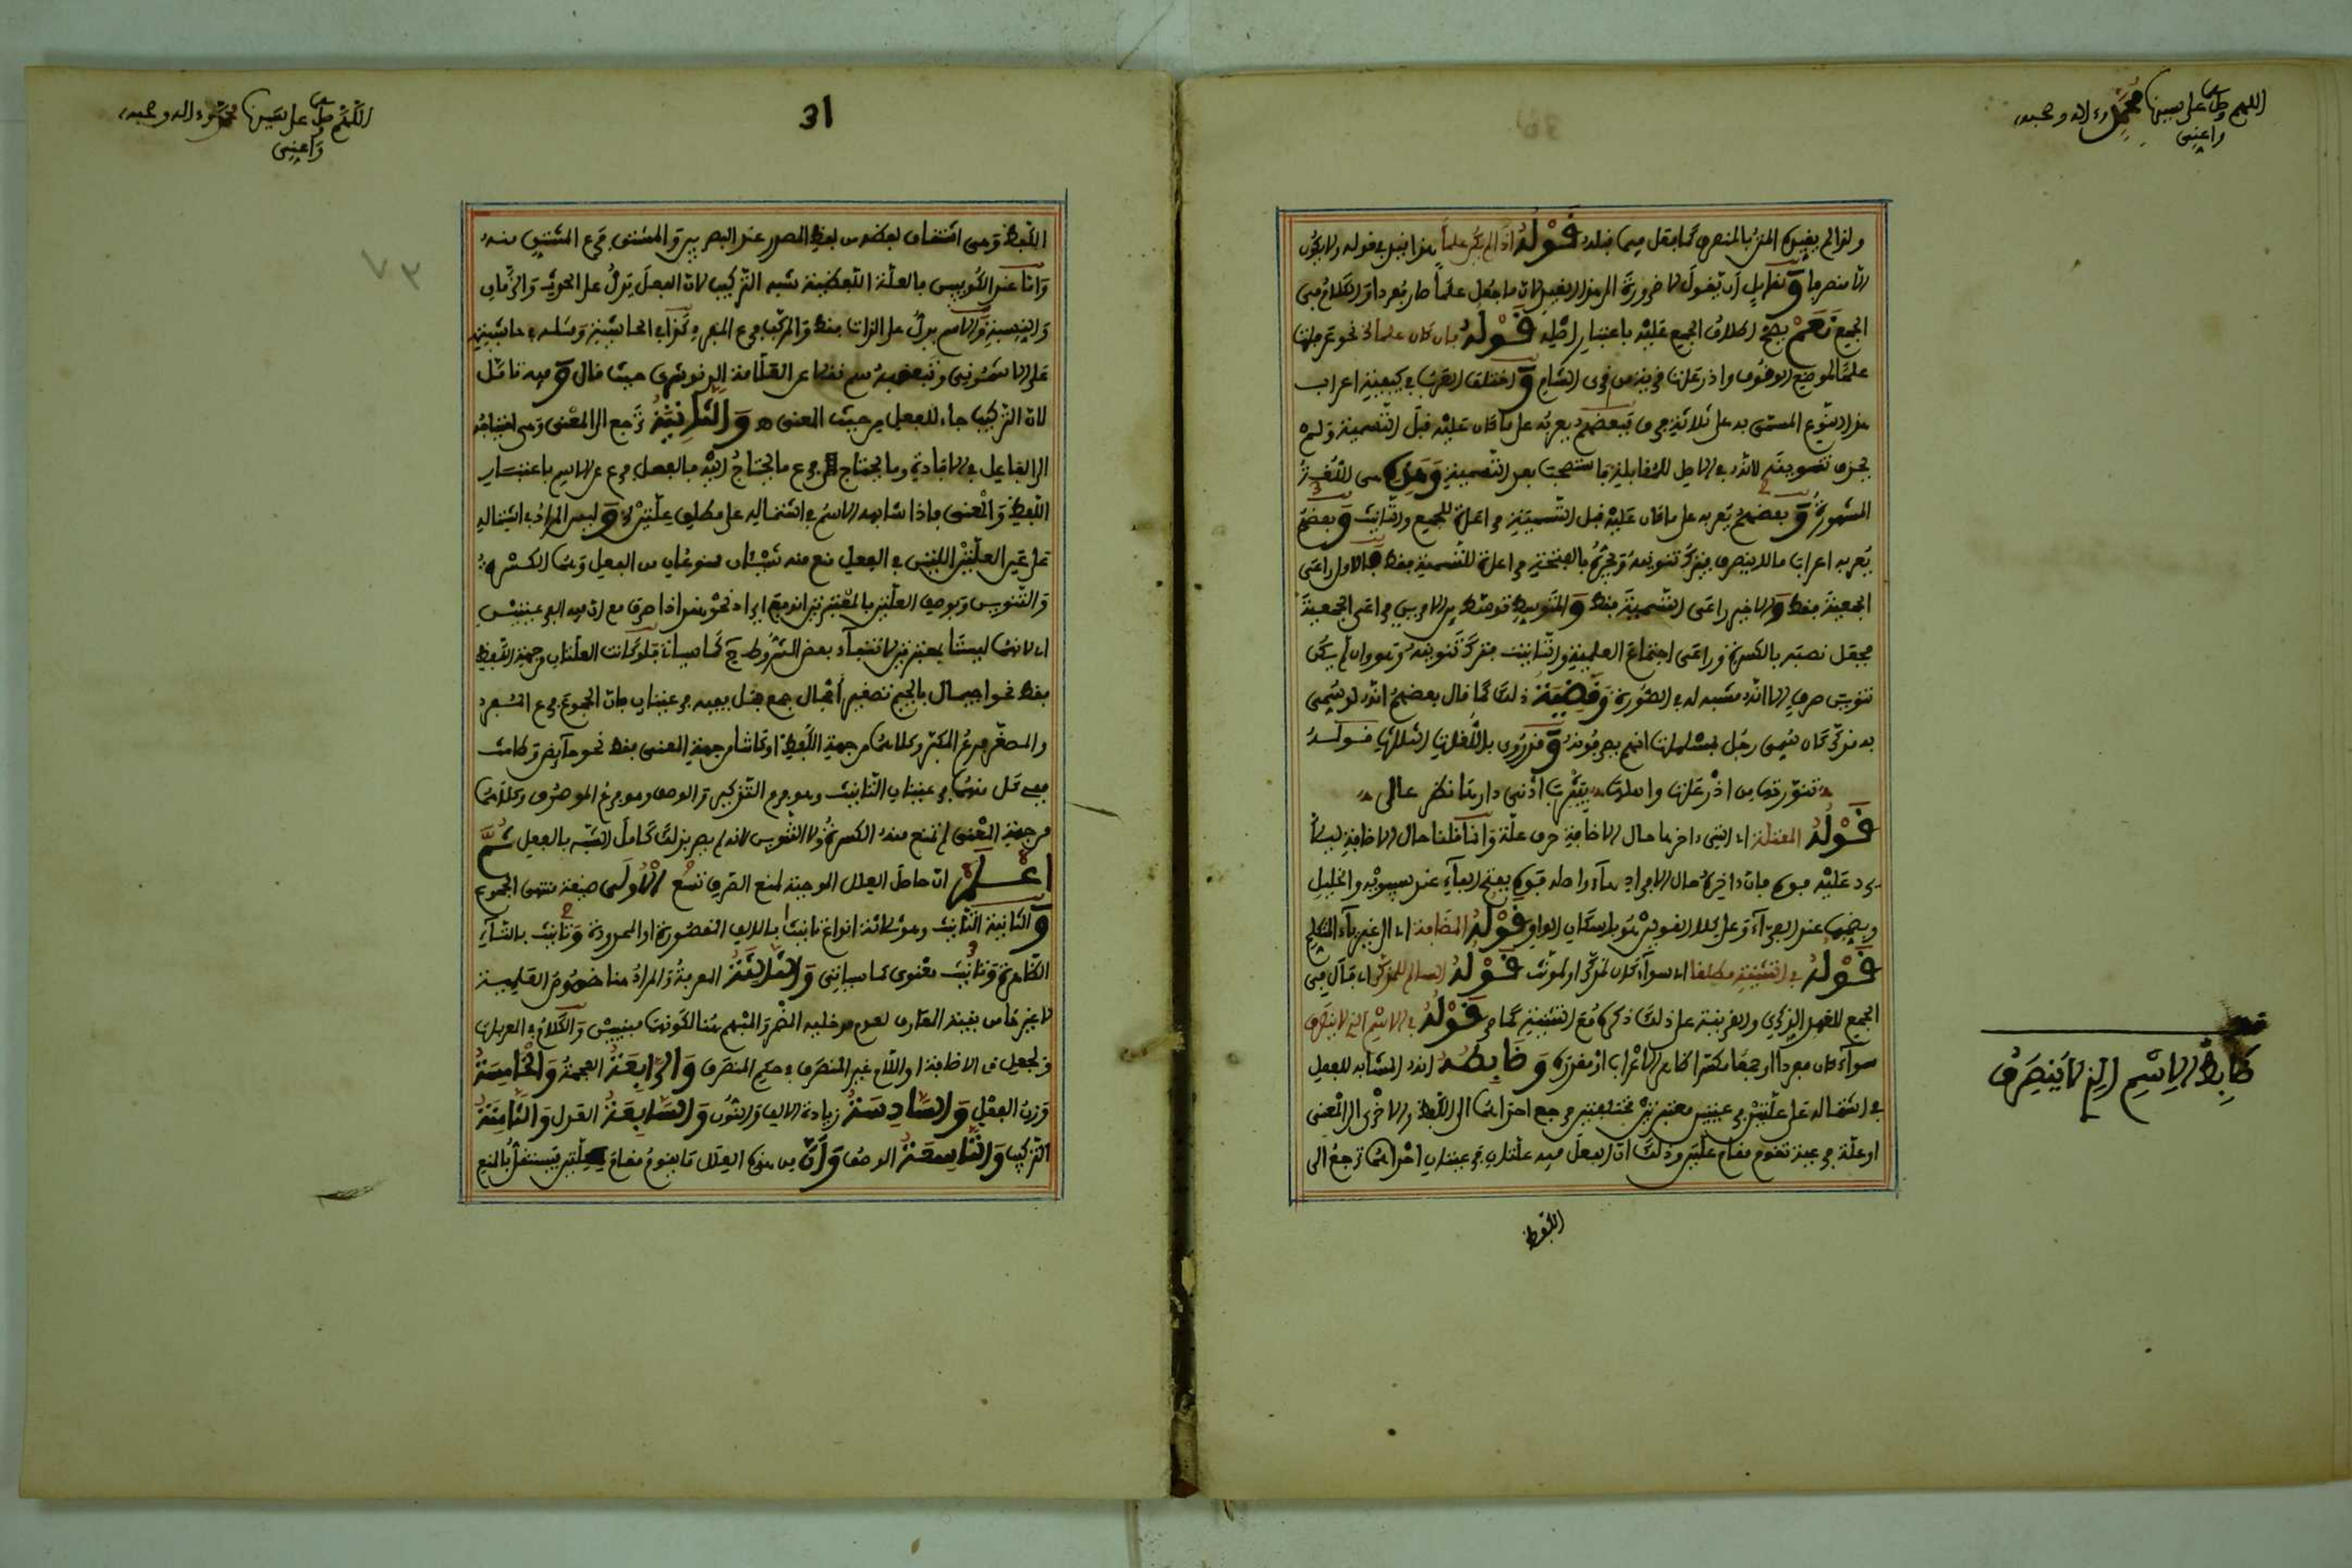 اللهم صل على سيدنا محمد وءاله وصحبه
واعني
ولذا لم يقيد المفرد بالمنصرف كما فعل فيما قبله قوله اذا لم يكن علما هذا القيد في قوله ولا يكون
الا منصرفا و لقائل أن يقول لا ضرورة الى هذا القيد لان ما جعل علما صار مفردا والكلام في
الجمع نعم يصح اطلاق الجمع عليه باعتبار اصله قوله فان كان علما الخ نحو عرفات
علما لموضع الوقوف واذرعات قرية من قرى الشام و اختلف العرب في كيفية اعراب
هذا النوع المسمى به على ثلاثة فرق فبعضهم يعربه على ما كان عليه قبل التسمية ولم
يحذف تنوينه لانه في الاصل للمقابلة فاستصحب بعد التسمية وهذه هي اللغة
المشهورة و بعضهم يعربه على ما كان عليه قبل التسمية مراعاة للجمع والتانيث و بعضهم
يعربه اعراب ما لا ينصرف فيترك تنوينه ويجره بالفتحة مراعاة للتسمية فقط فالاول راعى
الجمعية فقط والاخير راعى التسمية فقط والمتوسط توسط بين الامرين فراعى الجمعية
فجعل نصبه بالكسرة وراعى اجتماع العلمية والتانيث فترك تنوينه وهو وان لم يكن
تنوين صرف الا انه مشبه له في الصورة وقضية ذلك كما قال بعضهم انه لو سمي
به مذكر كان سمي رجل بمسلمات انهم يصرفونه و قد روي بالاوجه الثلاثة قوله
تنورتها من اذرعات واهلها بيثرب ادنى دارها نظر عالى
قوله المعتلة اي التي ءاخرها حال الاضافة حرف علة وانما قلنا حال الاضافة ليلا
يرد عليه فوك فان ءاخره حال الافراد هاء واصله فوه بفتح الفاء عند سيبويه والخليل
وبضمها عند الفراء وعلى كلا القولين هو باسكان الواو قوله المضافة اي الى غير ياء المتكلم
قوله في التثنية مطلقا اي سواء كان لمذكر او لمونث قوله السالم للمذكر اي فال في
الجمع للعهد الذكري والقرينة على ذلك ذكره مع التثنية كما مر قوله في الاسم الذي لا ينصرف
سواء كان مفردا او جمعا مكسرا ظاهر الاعراب او مقدره وضابطه انه المشابه للفعل
في اشتماله على علتين فرعيتين معتبرتين مختلفتين مرجع احداهما الى اللفظ والاخرى الى المعنى
او علة فرعية تقوم مقام علتين وذلك ان الفعل فيه علتان فرعيتان احداهما ترجع الى
اللفظ
ضابط الاسم الذي لا ينصرف
31
اللهم صل على سيدنا محمد وءاله وصحبه
واعني
اللفظ وهي اشتقاق لفظه من لفظ المصدر عند البصريين والمشتق فرع المشتق منه
واما عند الكوفيين فالعلة اللفظية شبه التركيب لان الفعل يدل على الحدث والزمان
والنسبة والاسم يدل على الذات فقط والمركب فرع المفرد كذا في الحاشية ومثله في حاشيته
على الاشموني وتبعه من نقل عن العلامة الدنوشري حيث قال و فيه تامل
لان التركيب جاء للفعل من حيث المعنى ه والثانية ترجع الى المعنى وهي احتياجه
الى الفاعل في الافادة وما يحتاج فرع ما يحتاج اليه فالفعل فرع عن الاسم باعتبار
اللفظ والمعنى فاذا شابهه الاسم في اشتماله على مطلق علتين و ليس المراد اشتماله
على عين العلتين اللتين في الفعل منع منه شيئان ممنوعان من الفعل وهما الكسرة
والتنوين وبوصف العلتين بالمعتبرتين اندفع ايراد نحو هذا صرف مع ان فيه الفرعيتين
اي لانهما ليستا بمعتبرتين لانتفاء بعض الشروط كما سياتي فلو كانت العلتان من جهة اللفظ
فقط نحو اجيمال بالجيم تصغير أجمال جمع جمل ففيه فرعيتان فان الجموع فرع المفرد
والمصغر فرع المكبر وكلاهما من جهة اللفظ او كانتا من جهة المعنى فقط نحو حائض وطامث
ففي كل منهما فرعيتان التانيث وهو فرع التذكير والوصف وهو فرع الموصوف وكلاهما
من جهة المعنى لم تمنع منه الكسرة ولا التنوين لانه لم يصر بذلك كامل الشبه بالفعل ثم
اعلم ان حاصل العلل الموجبة لمنع الصرف تسع الاولى صيغة منتهى الجموع
و الثانية التانيث وهو ثلاثة انواع تانيث بالالف المقصورة او الممدودة وتانيث بالتاء
الظاهرة وتانيث معنوى كما سياتي والثالثة المعرفة والمراد هنا خصوص العلمية
لا غيرها من بقية المعارف لعدم دخلية المضمر والمبهم هنا لكونهما مبنيين والكلام في المعربات
ولجعل الاضافة او اللام غير المنصرف في حكم المنصرف والرابعة العجمة والخامسة
وزن الفعل والسادسة زيادة الالف والنون والسابعة العدل والثامنة
التركيب والتاسعة الوصف وأن من هذه العلل ما يقوم مقام علتين فيستقل بالمنع